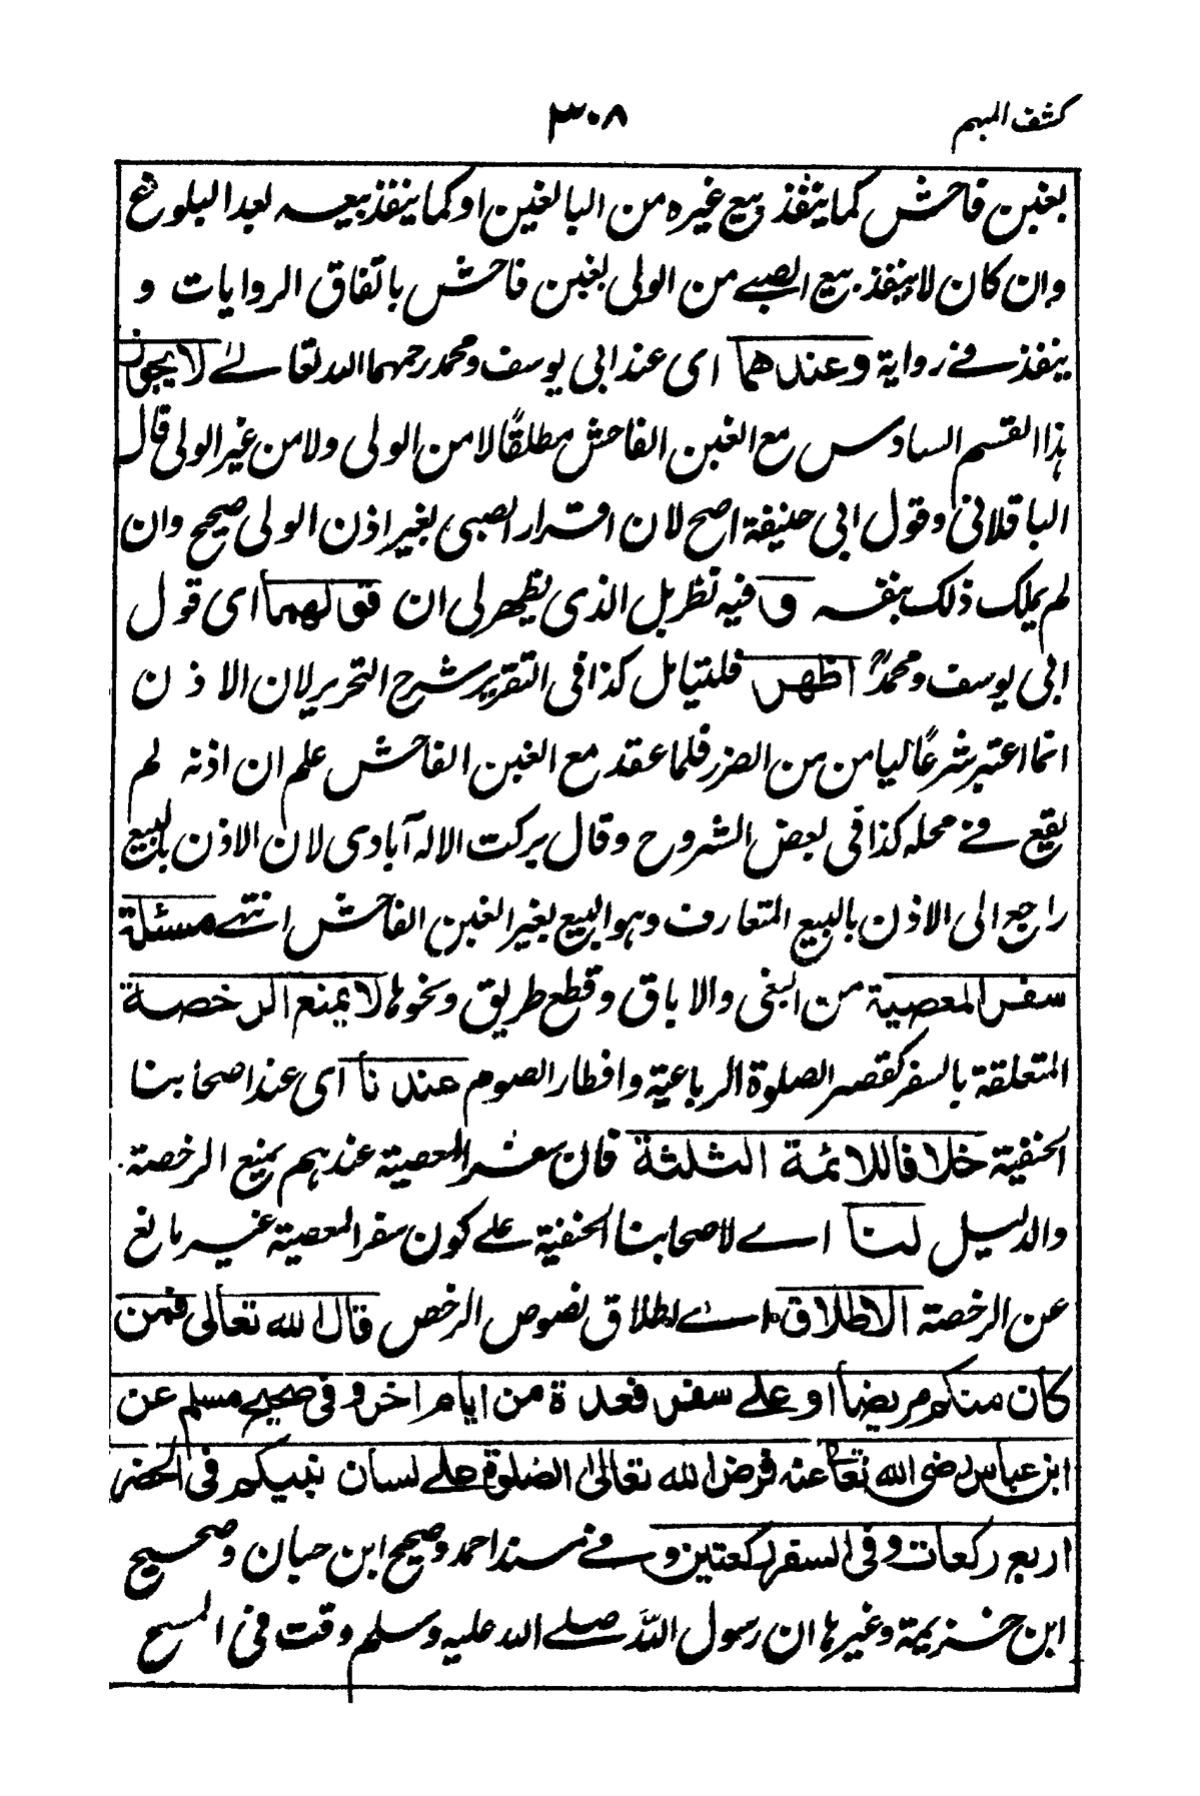 كشف المبهم ٣٠٨
بغبن فاحش كما ينفذ بيع غيره من البالغين او كما ينفذ بيعه بعد البلوغ
وان كان لا ينفذ بيع الصبے من الولى بغبن فاحش باتفاق الروايات و
ينفذ فے رواية وعندهما اى عند ابى يوسف ومحمد رحمهما الله تعالےٰ لا يجوز
هذا القسم السادس مع الغبن الفاحش مطلقًا لا من الولى ولا من غير الولى قال
الباقلانى وقول ابى حنيفة اصح لان اقرار الصبى بغير اذن الولى صحيح وان
لم يملك ذلك بنفسه و فيه نظر بل الذى يظهر لى ان قولهما اى قول
ابى يوسف ومحمدؒ اظهر فليتامل كذا فى التقرير شرح التحرير لان الاذن
انما اعتبر شرعًا ليامن من الضرر فلما عقد مع الغبن الفاحش علم ان اذنه لم
يقع فے محله كذا فى بعض الشروح وقال بركت الاله آبادى لان الاذن بالبيع
راجع الى الاذن بالبيع المتعارف وهو البيع بغير الغبن الفاحش انتهے مسئلة
سفر المعصية من البغى والاباق وقطع طريق ونحوها لا يمنع الرخصة
المتعلقة بالسفر كقصر الصلوة الرباعية وافطار الصوم عندنا اى عند اصحابنا
الحنفية خلافا للائمة الثلثة فان سفر المعصية عندهم يمنع الرخصة
والدليل لنا اے لاصحابنا الحنفية علے كون سفر المعصية غير مانع
عن الرخصة الاطلاق اے اطلاق نصوص الرخص قال الله تعالى فمن
كان منكم مريضا او علے سفر فعدة من ايام اخر و فى صحيح مسلم عن
ابن عباس رضى الله تعالى عنه فرض الله تعالىٰ الصلوة علے لسان نبيكم فى الحضر
اربع ركعات و فى السفر ركعتين و فے مسند احمد وصحيح ابن حبان وصحيح
ابن خزيمة وغيرها ان رسول اللهؐ صلے الله عليه وسلم وقت فى المسح